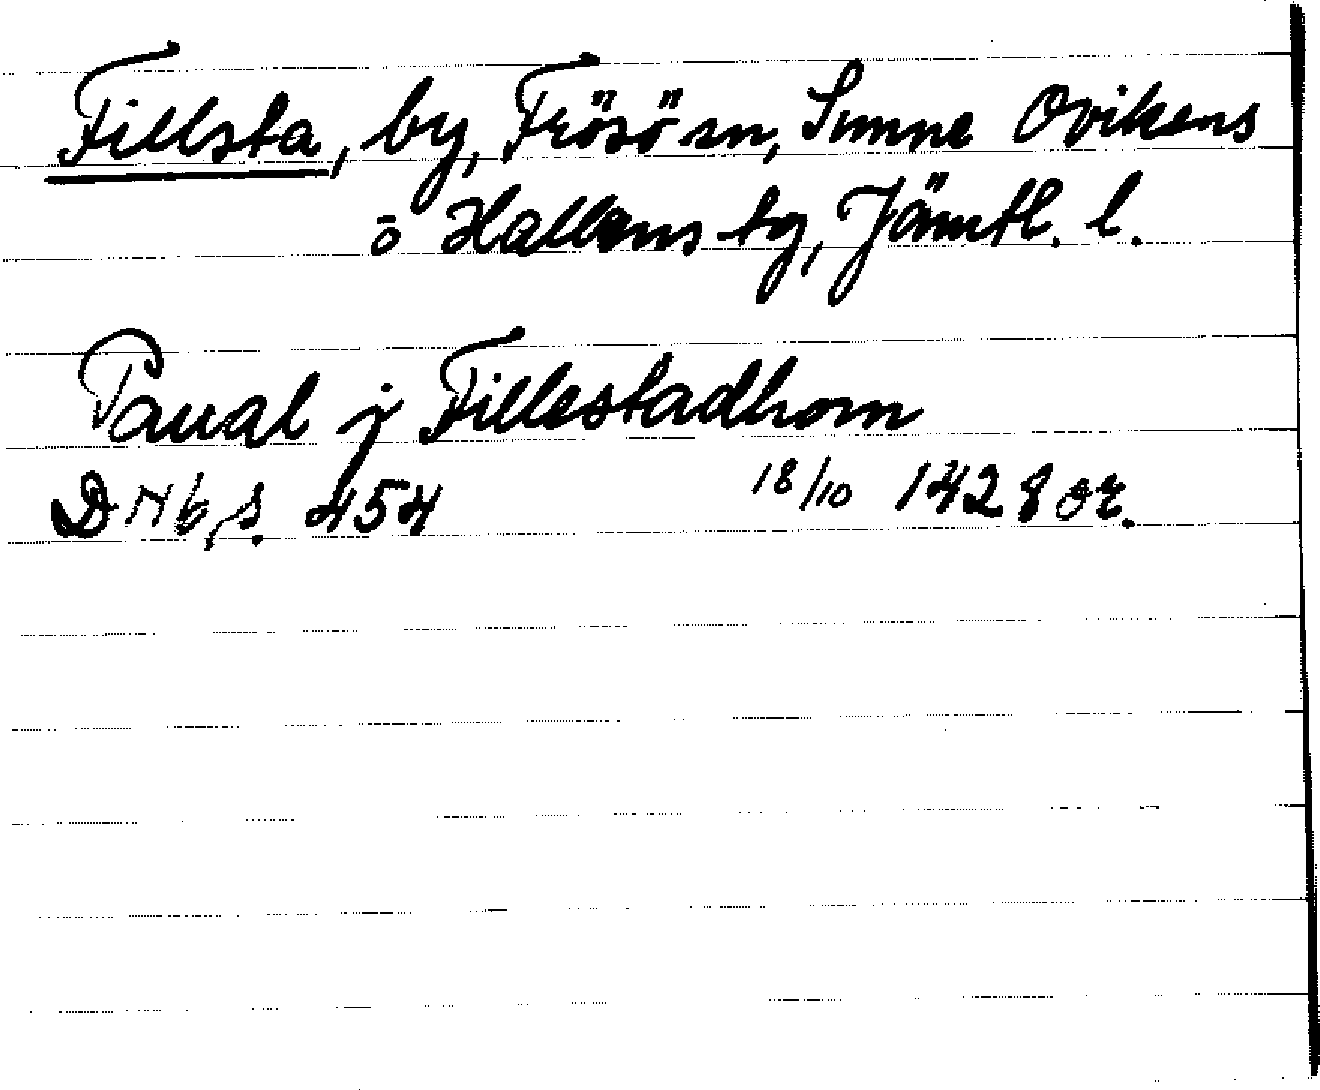 Fillsta, by, Frösö sn, Sunne Ovikens
o Hallens tg, Jämtl. l.
Paual j Fillestadhom
DN 16, s. 454 18/10 1428 or.